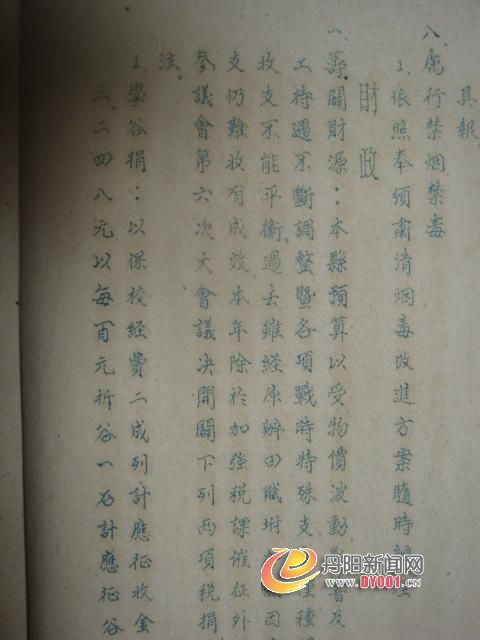 具報
八、厲行禁烟禁毒
1.依照奉頒肅清烟毒改進方案隨時
財政
一、籌闢財源：本縣預算以受物價波動及
工待遇不斷調整暨各項戰時特殊支種
收支不能平衡過去雖経庫辦田賦坿因
支仍难收有成效本年除於加強税課催征外
参議會第六次大會議决開闢下列两項税捐
法。
1.學谷捐：以保校経費二成列計應征收金
三、二四八元以每百元折谷一石計應征谷
丹阳新闻网
WWW.DY001.CN